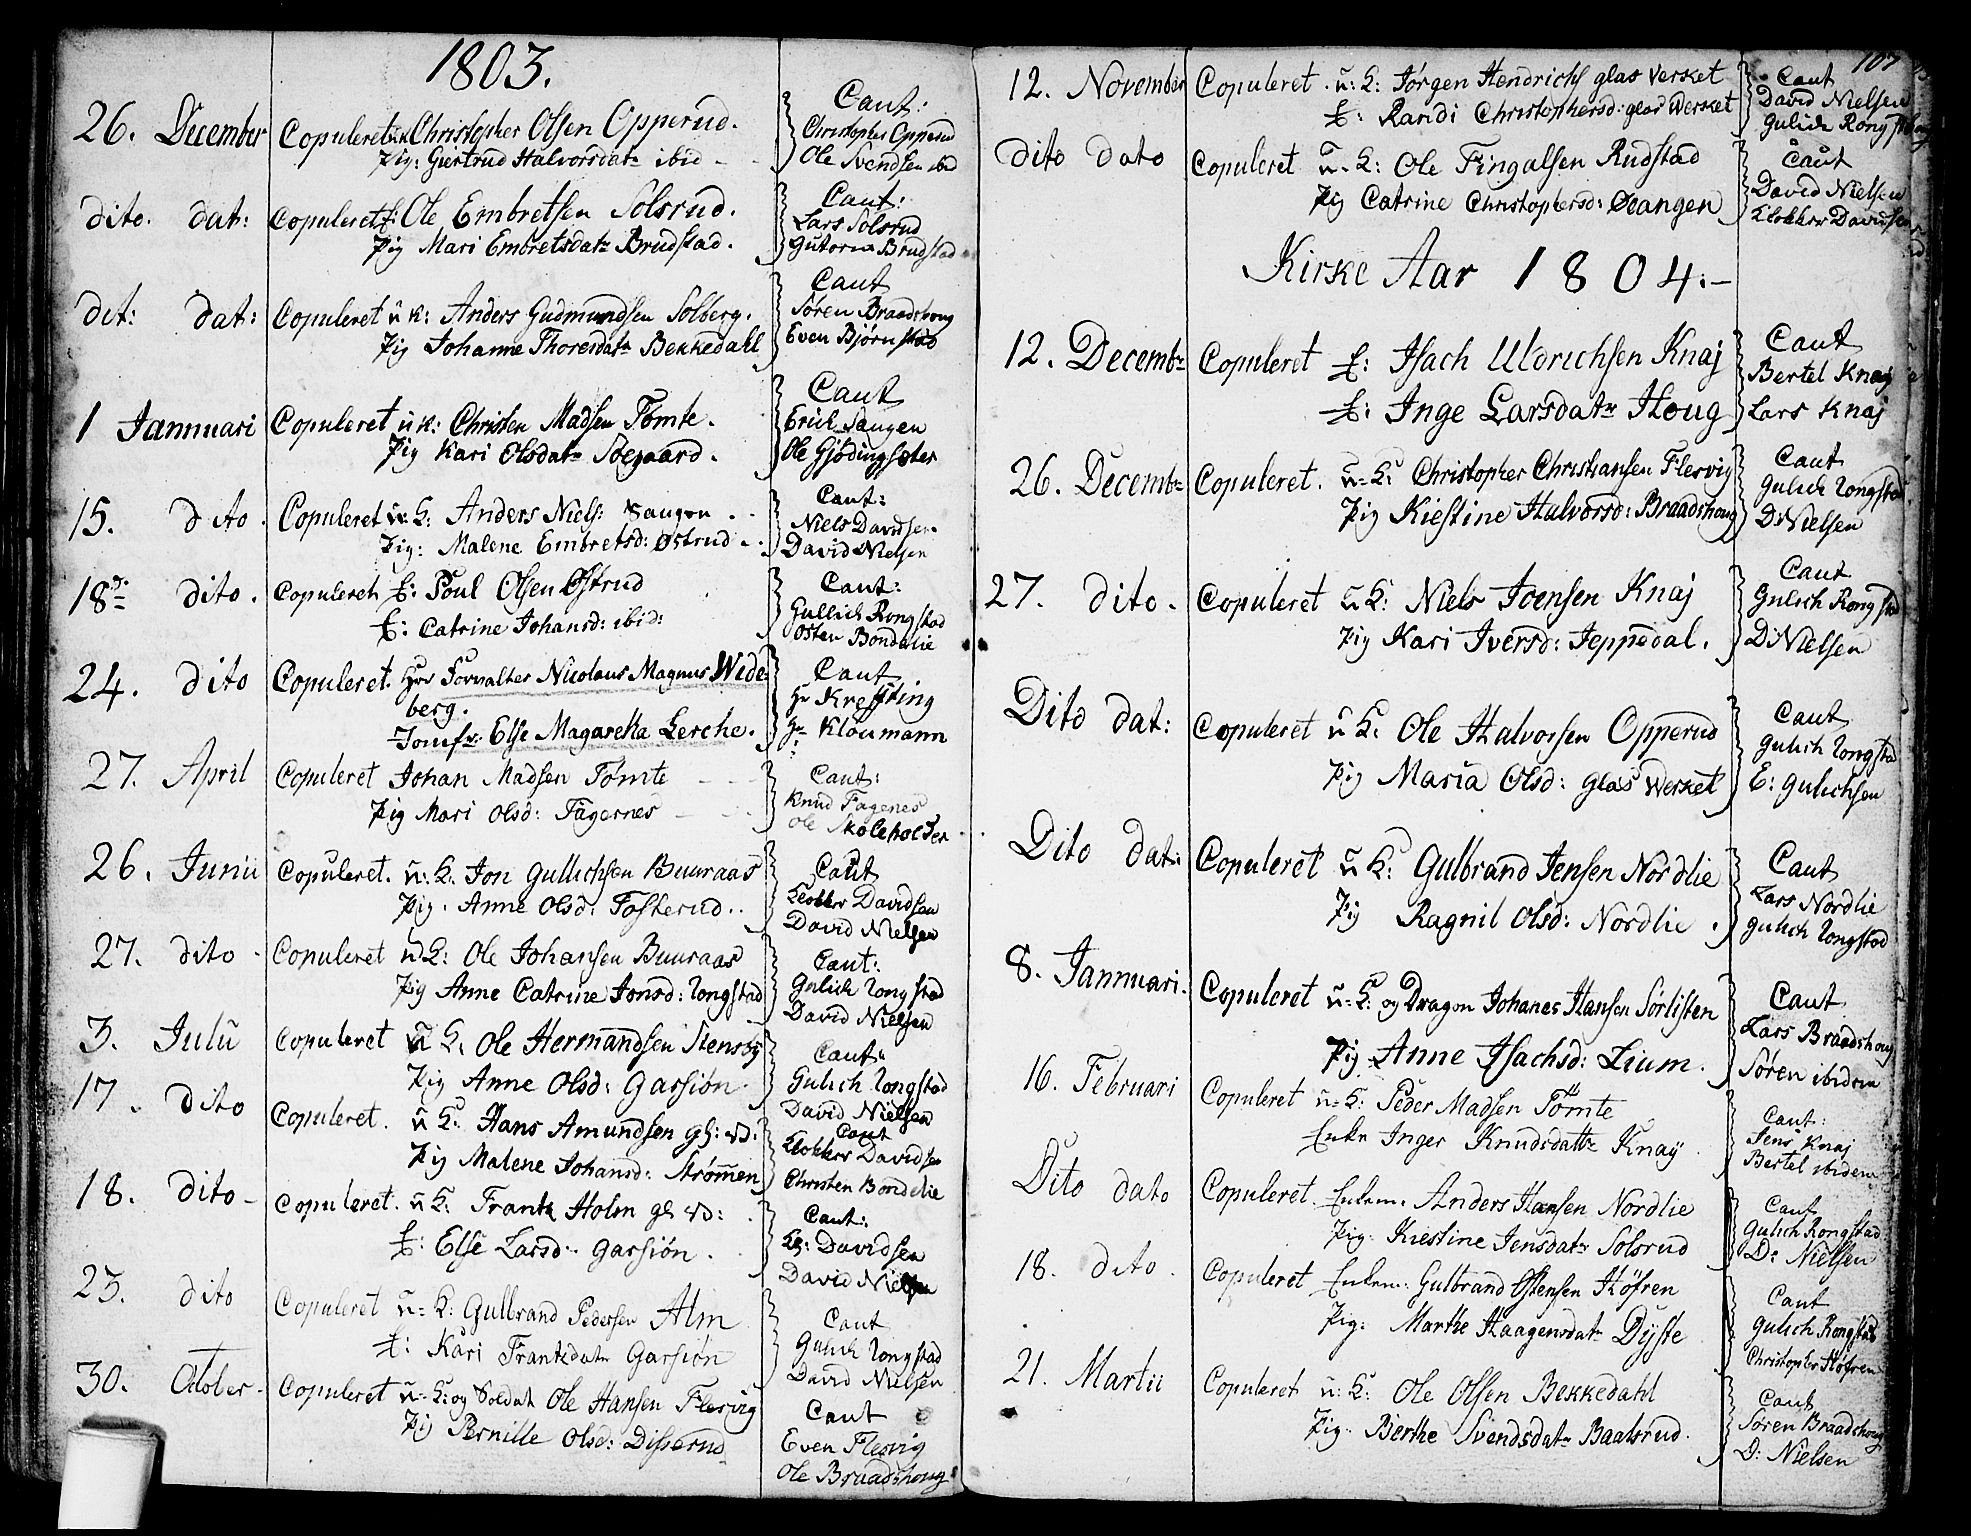 1803.
26. December Copuleret u:k: Christopher Olsen Opperud.
Pig: Giertrud Halvorsdatr ibid -
Caut:
Christopher Opperud
Ole Svendsen ibd
dito. dat: Copuleret E: Ole Embretsen Solsrud.
Pig Mari Embretsdatr Brudstad.
Caut:
Lars Solsrud
Gutorm Brudstad
dit: dat: Copuleret u k: Anders Gudmundsen Solberg.
Pig Johanne Thoresdatr Bekkedahl
Caut
Sören Braadshoug
Even Bjórnstad
1 Jannuari Copuleret u k: Christen Madsen Tømte.
Pig Kari Olsdatr Soegaard.
Caut
Erich Saugen
Ole Gjödingsæter
15. dito Copuleret u. K: Anders Niels: Saugen
Pig: Malene Embretsd: Østrud
Caut:
Niels Davidsen
David Nielsen
18de dito. Copuleret E: Poul Olsen Østrud
E: Catrine Johansd: ibid:
Caut:
Gullich Rongstad
Osten Bondelie
24. dito Copuleret. Hrr Forvalter Nicolaus Magnus Wide-
berg.
Jomfr: Else Magareta Lerche.
Caut
Hr Krefting
Hr Kloumann
27. April Copuleret Johan Madsen Tømte
Pig Mari Olsd: Fagernes
Caut:
Knud Fagenes
Ole Skoleholder
26. Junii Copuleret. u: K: Jon Gullichsen Buuraas
Pig. Anne Olsd: Fosterud.
Caut
Klokker Davidsen
David Nielsen
27. dito Copuleret u K: Ole Johansen Buuraas
Pig Anne Catrine Jonsd: Rongstad
Caut:
Gulich Rongstad
David Nielsen
3. Julii Copuleret u K: Ole Hermandsen Stensby
Pig Anne Olsd: Garsión.
Caut:
Gulich Rongstad
David Nielsen
17. dito Copuleret. u K: Hans Amundsen gl: W:
Pig Malene Johansd: Strømen
Caut
Klokker Davidsen
Christen Bondelie
18. dito - Copuleret. u K: Frantz Holm gl W:
E: Else Larsd: Garsión.
Caut:
Kl: Davidsen
David Nielsen
23. dito Copuleret u: K: Gulbrand Pedersen Alm
E: Kari Frantzdatr Garsión
Caut
Gulich Rongstad
David Nielsen
30. October Copuleret u: K: og Soldat Ole Hansen Flesvig
Pig Pernille Olsd: Disserud
Caut
Even Flesvig
Ole Braadshoug
107
12. November Copuleret u: K: Jørgen Hendrichs glas Verket
E: Randi Christophersd: glas Werket
Caut
David Nielsen
Gulich Rongstad
dito dato Copuleret u: K: Ole Fingalsen Rudstad
Pig Catrine Christophersd: Øeangen
Caut
David Nielsen
Klokker Davidsen
Kirke Aar 1804.-
12. Decembr Copuleret E: Isach Uldrichsen Knaj
E: Inge Larsdatr Houg
Caut
Bertel Knaj
Lars Knaj
26. Decembr Copuleret. u: K: Christopher Christiansen Flesvig
Pig Kiestine Halvorsd: Braadshoug
Caut
Gulich Rongstad
D: Nielsen
27. dito. Copuleret u K: Niels Joensen Knaj
Pig Kari Iversd: Jeppedal.
Caut
Gulich Rongstad
D: Nielsen
Dito dat: Copuleret u K: Ole Halvorsen Opperud
Pig Maria Olsd: Glas Werket
Caut
Gulich Rongstad
E: Gulichsen
Dito dat: Copuleret u K: Gulbrand Jensen Nordlie
Pig Ragnil Olsd: Nordlie
Caut
Lars Nordlie
Gulich Rongstad
8. Jannuari. Copuleret u: K: og Dragon Johanes Hansen Sörlisten
Pig Anne Isachsd: Lium.
Caut
Lars Braadshoug
Søren ibidem
16. Februari Copuleret u: K: Peder Madsen Tömte
Enke Inger Knudsdattr Knaÿ
Caut:
Jens Knaj
Bertel ibidem
Dito dato Copuleret. Enkem: Anders Hansen Nordlie
Pig. Kiestine Jensdatr Solsrud
Caut
Gulich Rongstad
D: Nielsen
18. dito. Copuleret Enkem: Gulbrand Ostensen Höfren
Pig: Marthe Haagensdatr Dyste
Caut
Gulich Rongstad
Christopher Höfren
21. Martii Copuleret u: K: Ole Olsen Bekkedahl
Pig. Berthe Svendsdatr Baalsrud.
Caut
Søren Braadshoug
D: Nielsen